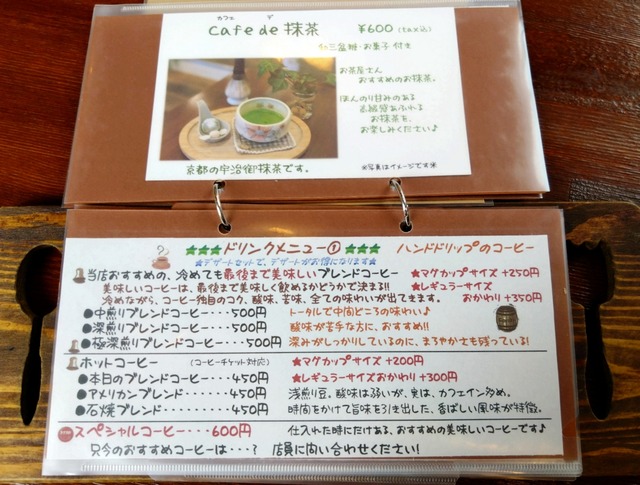 カフェ デ
Cafe de 抹茶 ¥600 (tax込)
和三盆糖・お菓子 付き
お茶屋さん
おすすめのお抹茶。
ほんのり甘みのある
高級感あふれる
お抹茶を、
お楽しみください♪
京都の宇治御抹茶です。
※写真はイメージです※
★★★ドリンクメニュー①★★★ ハンドドリップのコーヒー
★デザートセットで、デザートがお得になります★
当店おすすめの、冷めても最後まで美味しいブレンドコーヒー ★マグカップサイズ +250円
美味しいコーヒーは、最後まで美味しく飲めるかどうかで決まる!! ★レギュラーサイズ
冷めながら、コーヒー独自のコク、酸味、苦味、全ての味わいが出てきます。 おかわり+350円
●中煎りブレンドコーヒー・・・500円 トータルで中間どころの味わい♪
●深煎りブレンドコーヒー・・・500円 酸味が苦手な方に、おすすめ!!
●極深煎りブレンドコーヒー・・500円 深みがしっかりしているのに、まろやかさも残っている!
ホットコーヒー (コーヒーチケット対応) ★マグカップサイズ +200円
●本日のブレンドコーヒー・・・450円 ★レギュラーサイズおかわり +300円
●アメリカンブレンド・・・・・450円 浅煎り豆。酸味は弱いが、実は、カフェイン多め。
●石焼ブレンド・・・・・・・・450円 時間をかけて旨味を引き出した、香ばしい風味が特徴。
スペシャルコーヒー・・・600円 仕入れた時にだけある、おすすめの美味しいコーヒーです♪
只今のおすすめコーヒーは・・・? 店員に問い合わせください!